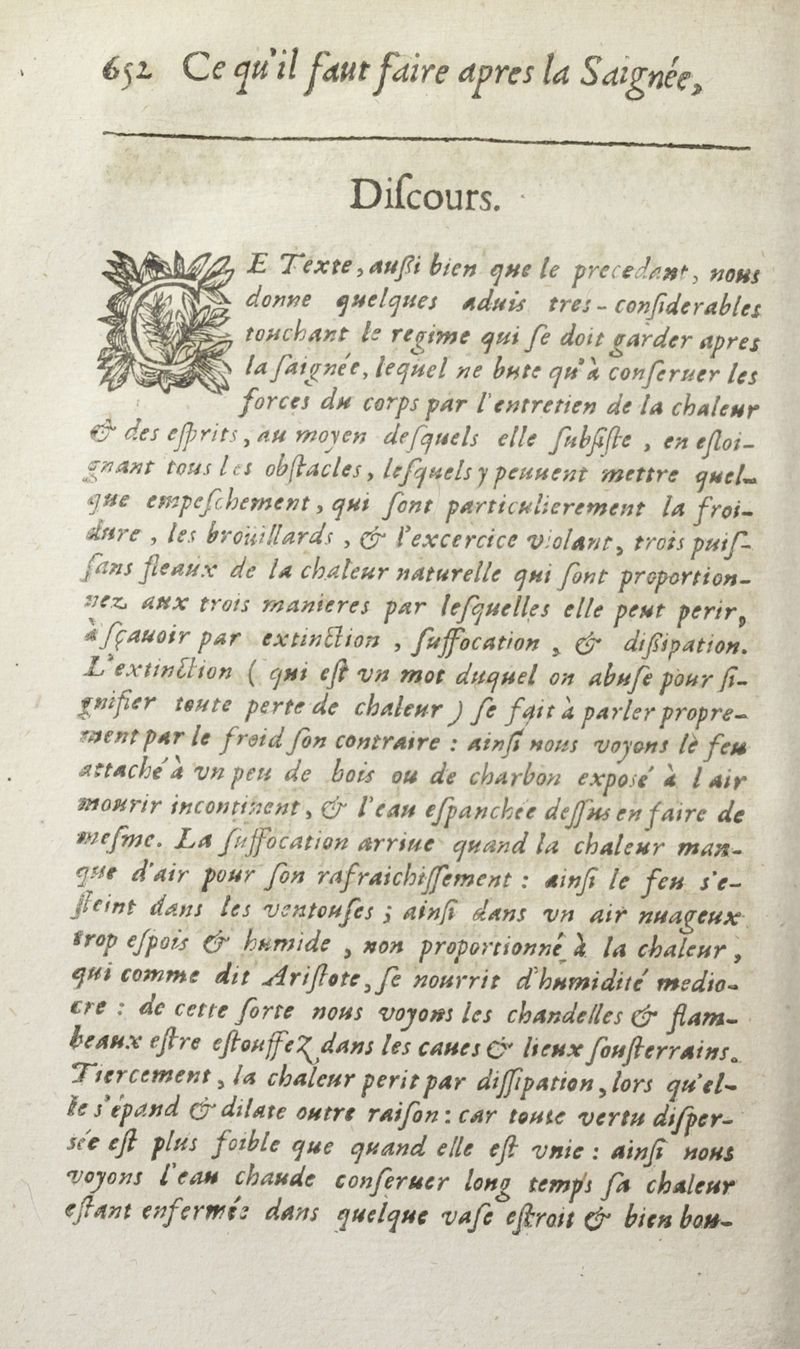 652 Ce qu'il faut faire apres la Saignée,
Diſcours.
CE Texte, auſſi bien que le precedant, nous
donne quelques aduis tres-conſiderables
touchant le regime qui ſe doit garder apres
la ſaignée, lequel ne bute qu'à conſeruer les
forces du corps par l'entretien de la chaleur
& des eſprits, au moyen deſquels elle ſubſiſte, en eſloi-
gnant tous les obſtacles, leſquels y peuuent mettre quel-
que empeſchement, qui ſont particulierement la froi-
dure, les broüillards, & l'excercice violant, trois puiſ-
ſans fleaux de la chaleur naturelle qui ſont proportion-
nez aux trois manieres par leſquelles elle peut perir,
à ſçauoir par extinction, ſuffocation, & diſſipation.
L'extinction ( qui eſt vn mot duquel on abuſe pour ſi-
gnifier toute perte de chaleur ) ſe fait à parler propre-
ment par le froid ſon contraire : ainſi nous voyons le feu
attaché à vn peu de bois ou de charbon exposé à l'air
mourir incontinent, & l'eau eſpanchée deſſus en faire de
meſme. La ſuffocation arriue quand la chaleur man-
que d'air pour ſon rafraichiſſement : ainſi le feu s'e-
ſteint dans les ventouſes ; ainſi dans vn air nuageux
trop eſpois & humide, non proportionné à la chaleur,
qui comme dit Ariſtote, ſe nourrit d'humidité medio-
cre : de cette ſorte nous voyons les chandelles & flam-
beaux eſtre eſtouffez dans les caues & lieux ſouſterrains.
Tiercement, la chaleur perit par diſſipation, lors qu'el-
le s'épand & dilate outre raiſon : car toute vertu diſper-
sée eſt plus foible que quand elle eſt vnie : ainſi nous
voyons l'eau chaude conſeruer long temps ſa chaleur
eſtant enfermée dans quelque vaſe eſtroit & bien bou-